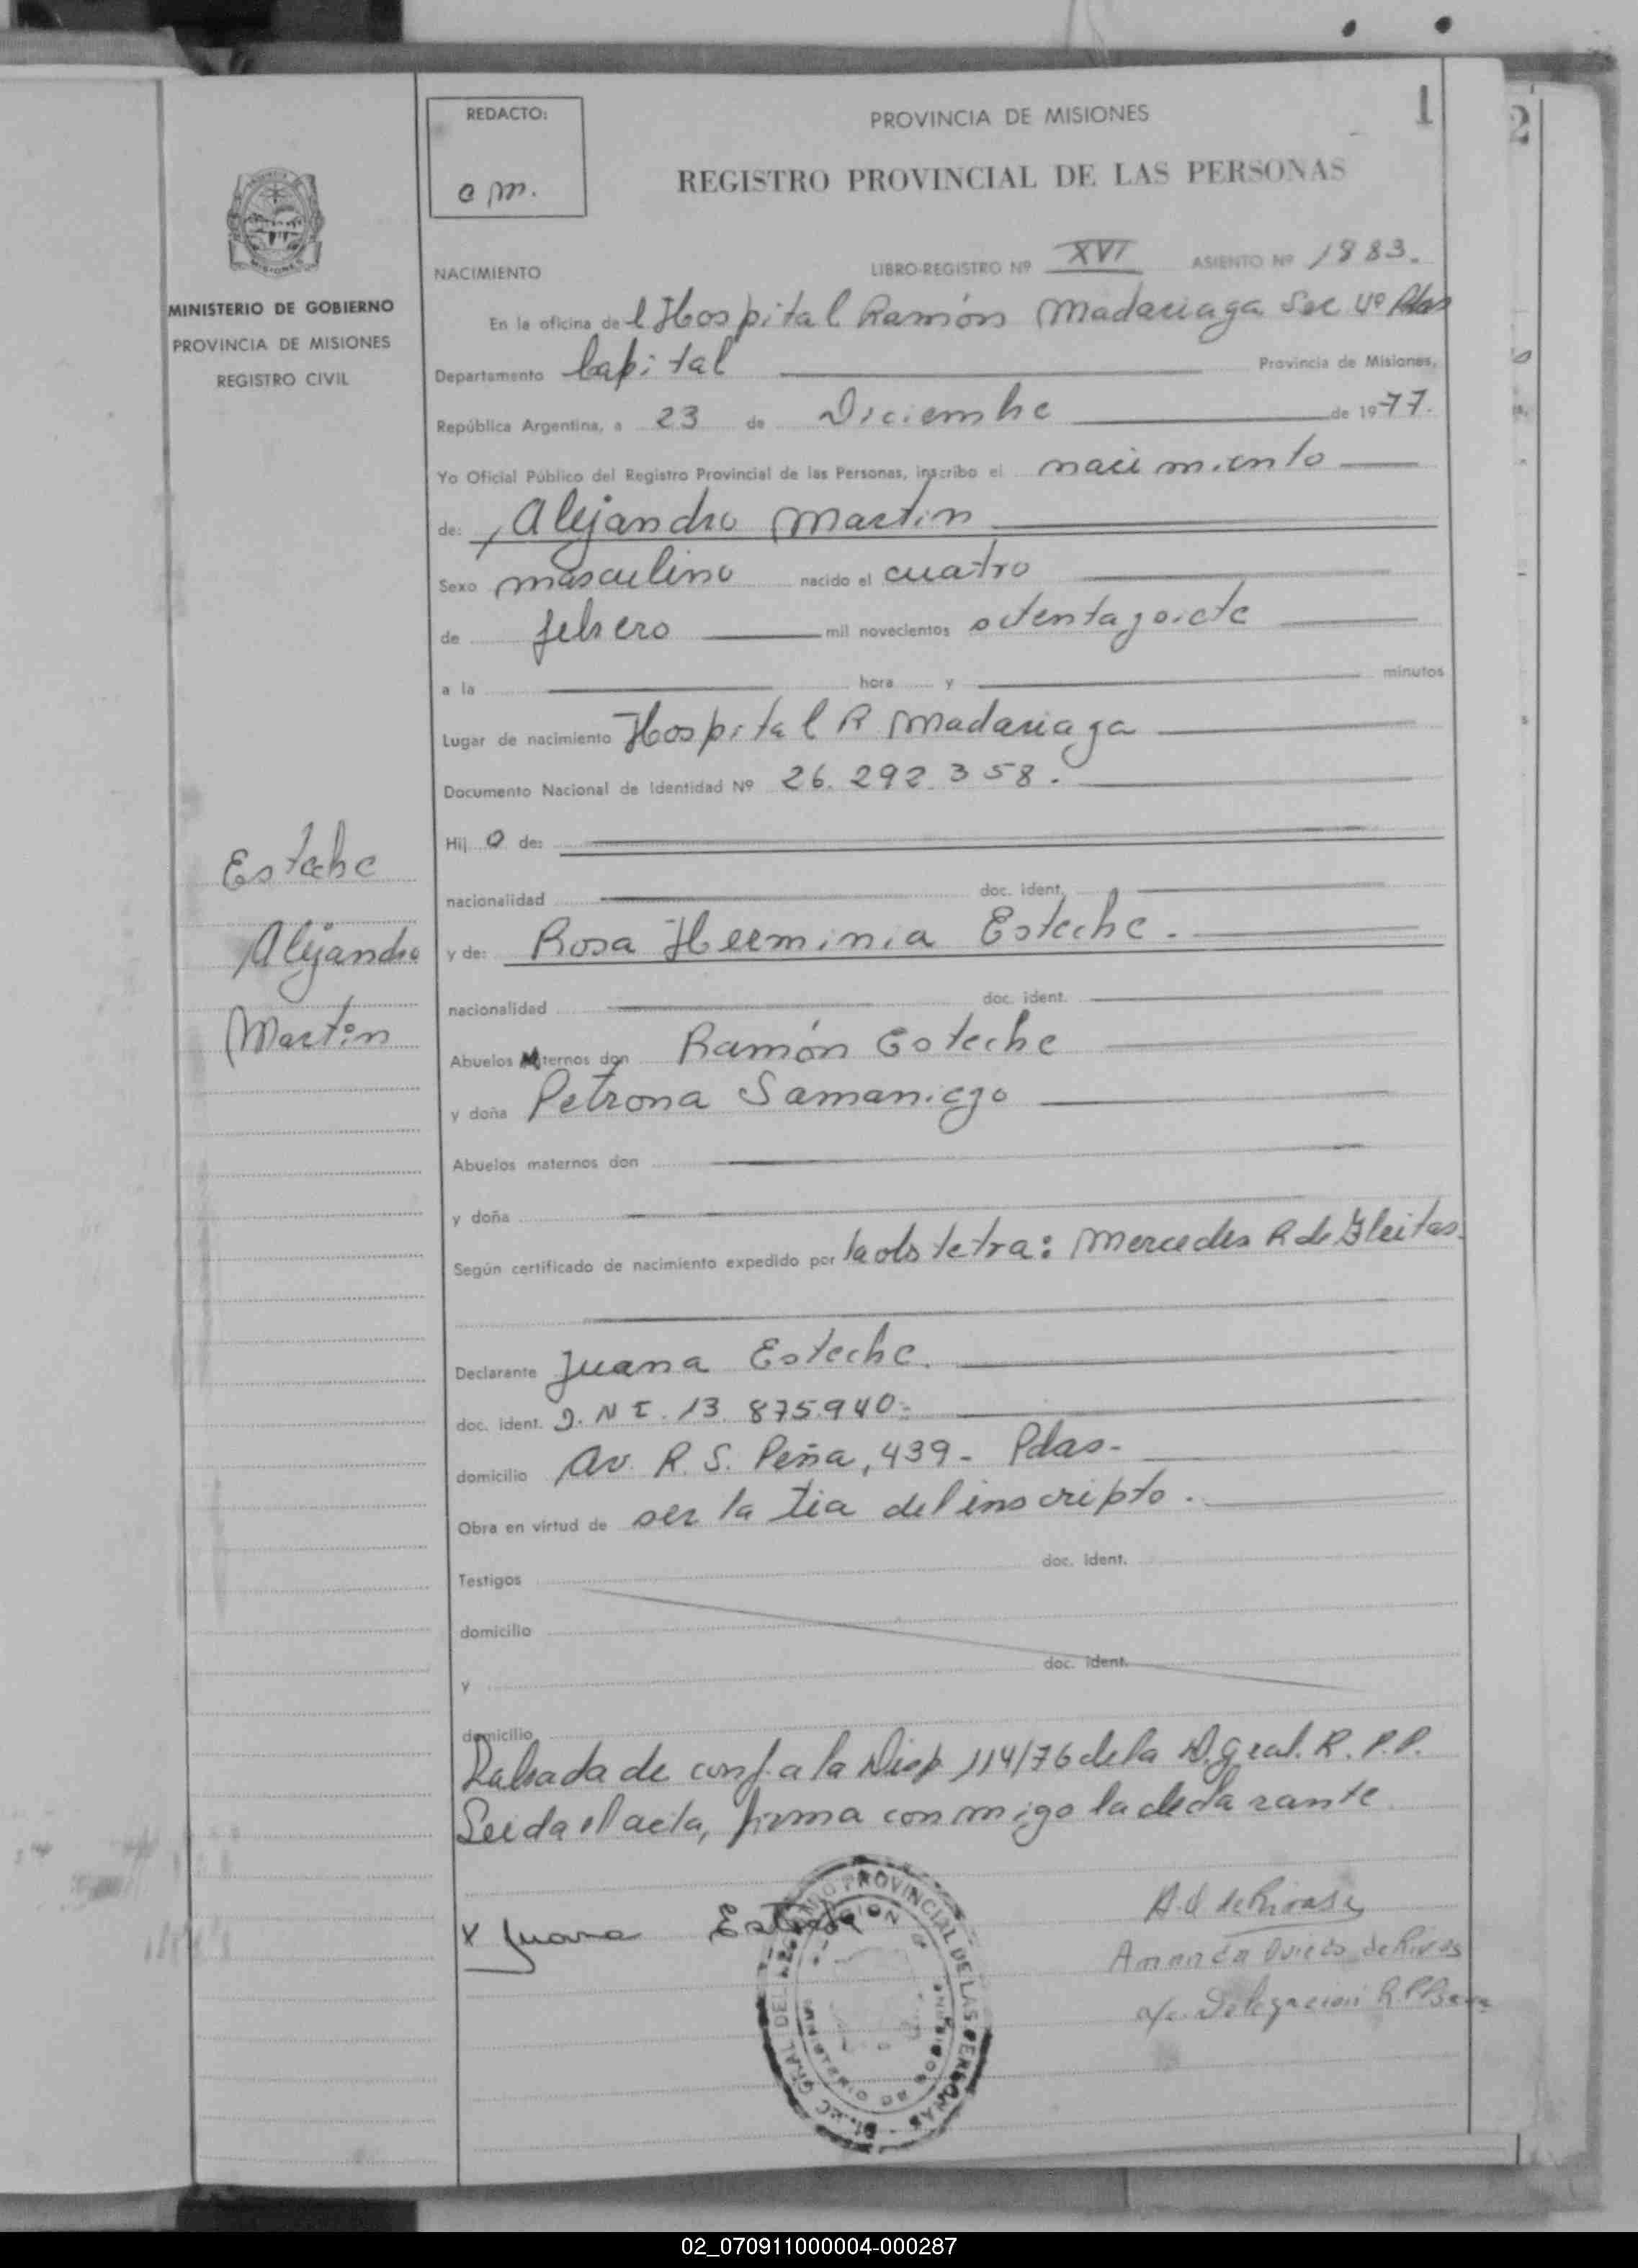 1
2
REDACTO:
a m.
PROVINCIA DE MISIONES
REGISTRO PROVINCIAL DE LAS PERSONAS
MISIONES
MINISTERIO DE GOBIERNO
PROVINCIA DE MISIONES
REGISTRO CIVIL
NACIMIENTO LIBRO-REGISTRO Nº XVI ASIENTO Nº 1883.
En la oficina del Hospital Ramón Madariaga Sec 4º Pdas
Departamento Capital Provincia de Misiones,
República Argentina, a 23 de Diciembre de 1977.
Yo Oficial Público del Registro Provincial de las Personas, inscribo el nacimiento
de: Alejandro Martin
Sexo masculino nacido el cuatro
de febrero mil novecientos setentaysiete
a la hora y minutos
Lugar de nacimiento Hospital R Madariaga
Documento Nacional de Identidad Nº 26.292.358.
Hijo de:
nacionalidad doc. ident.
y de: Rosa Herminia Esteche.
nacionalidad doc. ident.
Abuelos Maternos don Ramón Esteche
y doña Petrona Samaniego
Abuelos maternos don
y doña
Según certificado de nacimiento expedido por la obstetra: Mercedes R de Gleitas.
Declarante Juana Esteche.
doc. ident. D.N I. 13.875.940.-
domicilio Av. R. S. Peña, 439 - Pdas-
Obra en virtud de ser la tia del inscripto.
Testigos doc. ident.
domicilio
y doc. ident.
domicilio
Labrada de conf. a la Disp 114/76 de la D. gral. R.P.P.
Leida el acta, firma conmigo la declarante
Esteche
Alejandro
Martin
x Juana Esteche
PROVINCIAL DE LAS PERSONAS
A.O de Rivas
Amanda Oviedo de Rivas
a/c. Delegacion
02_070911000004-000287